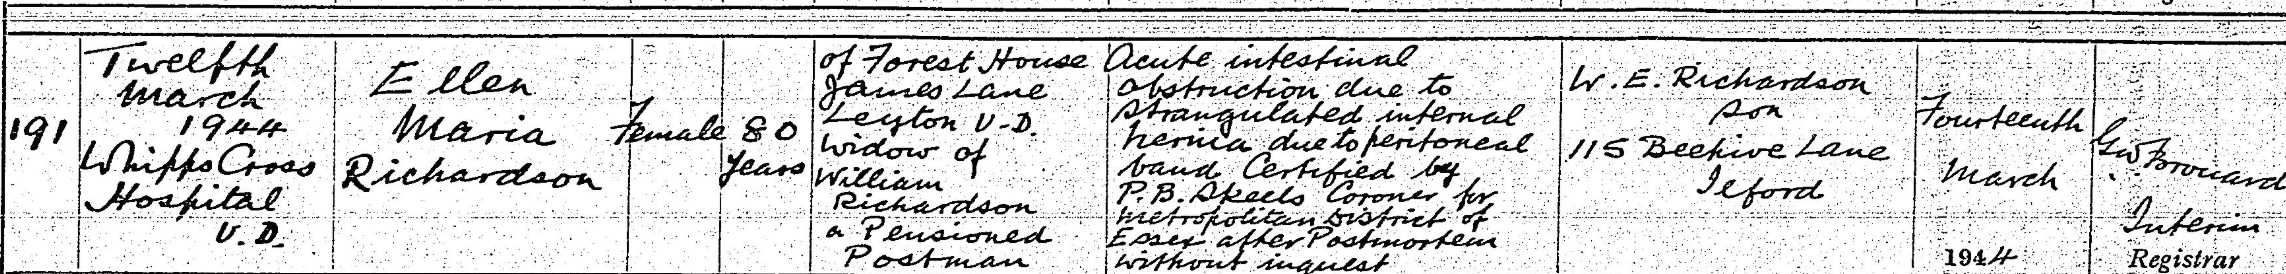 191
Twelfth
March
1944
Whipps Cross
Hospital
U.D.
Ellen
Maria
Richardson
Female
80
years
of Forest House
James Lane
Leyton U.D.
Widow of
William
Richardson
a Pensioned
Postman
Acute intestinal
obstruction due to
strangulated internal
hernia due to peritoneal
band Certified by
P.B. Skeels Coroner for
Metropolitan District of
Essex after Postmortem
without inquest
W. E. Richardson
son
115 Beehive Lane
Ilford
Fourteenth
March
1944
G.W. Brouard
Interim
Registrar